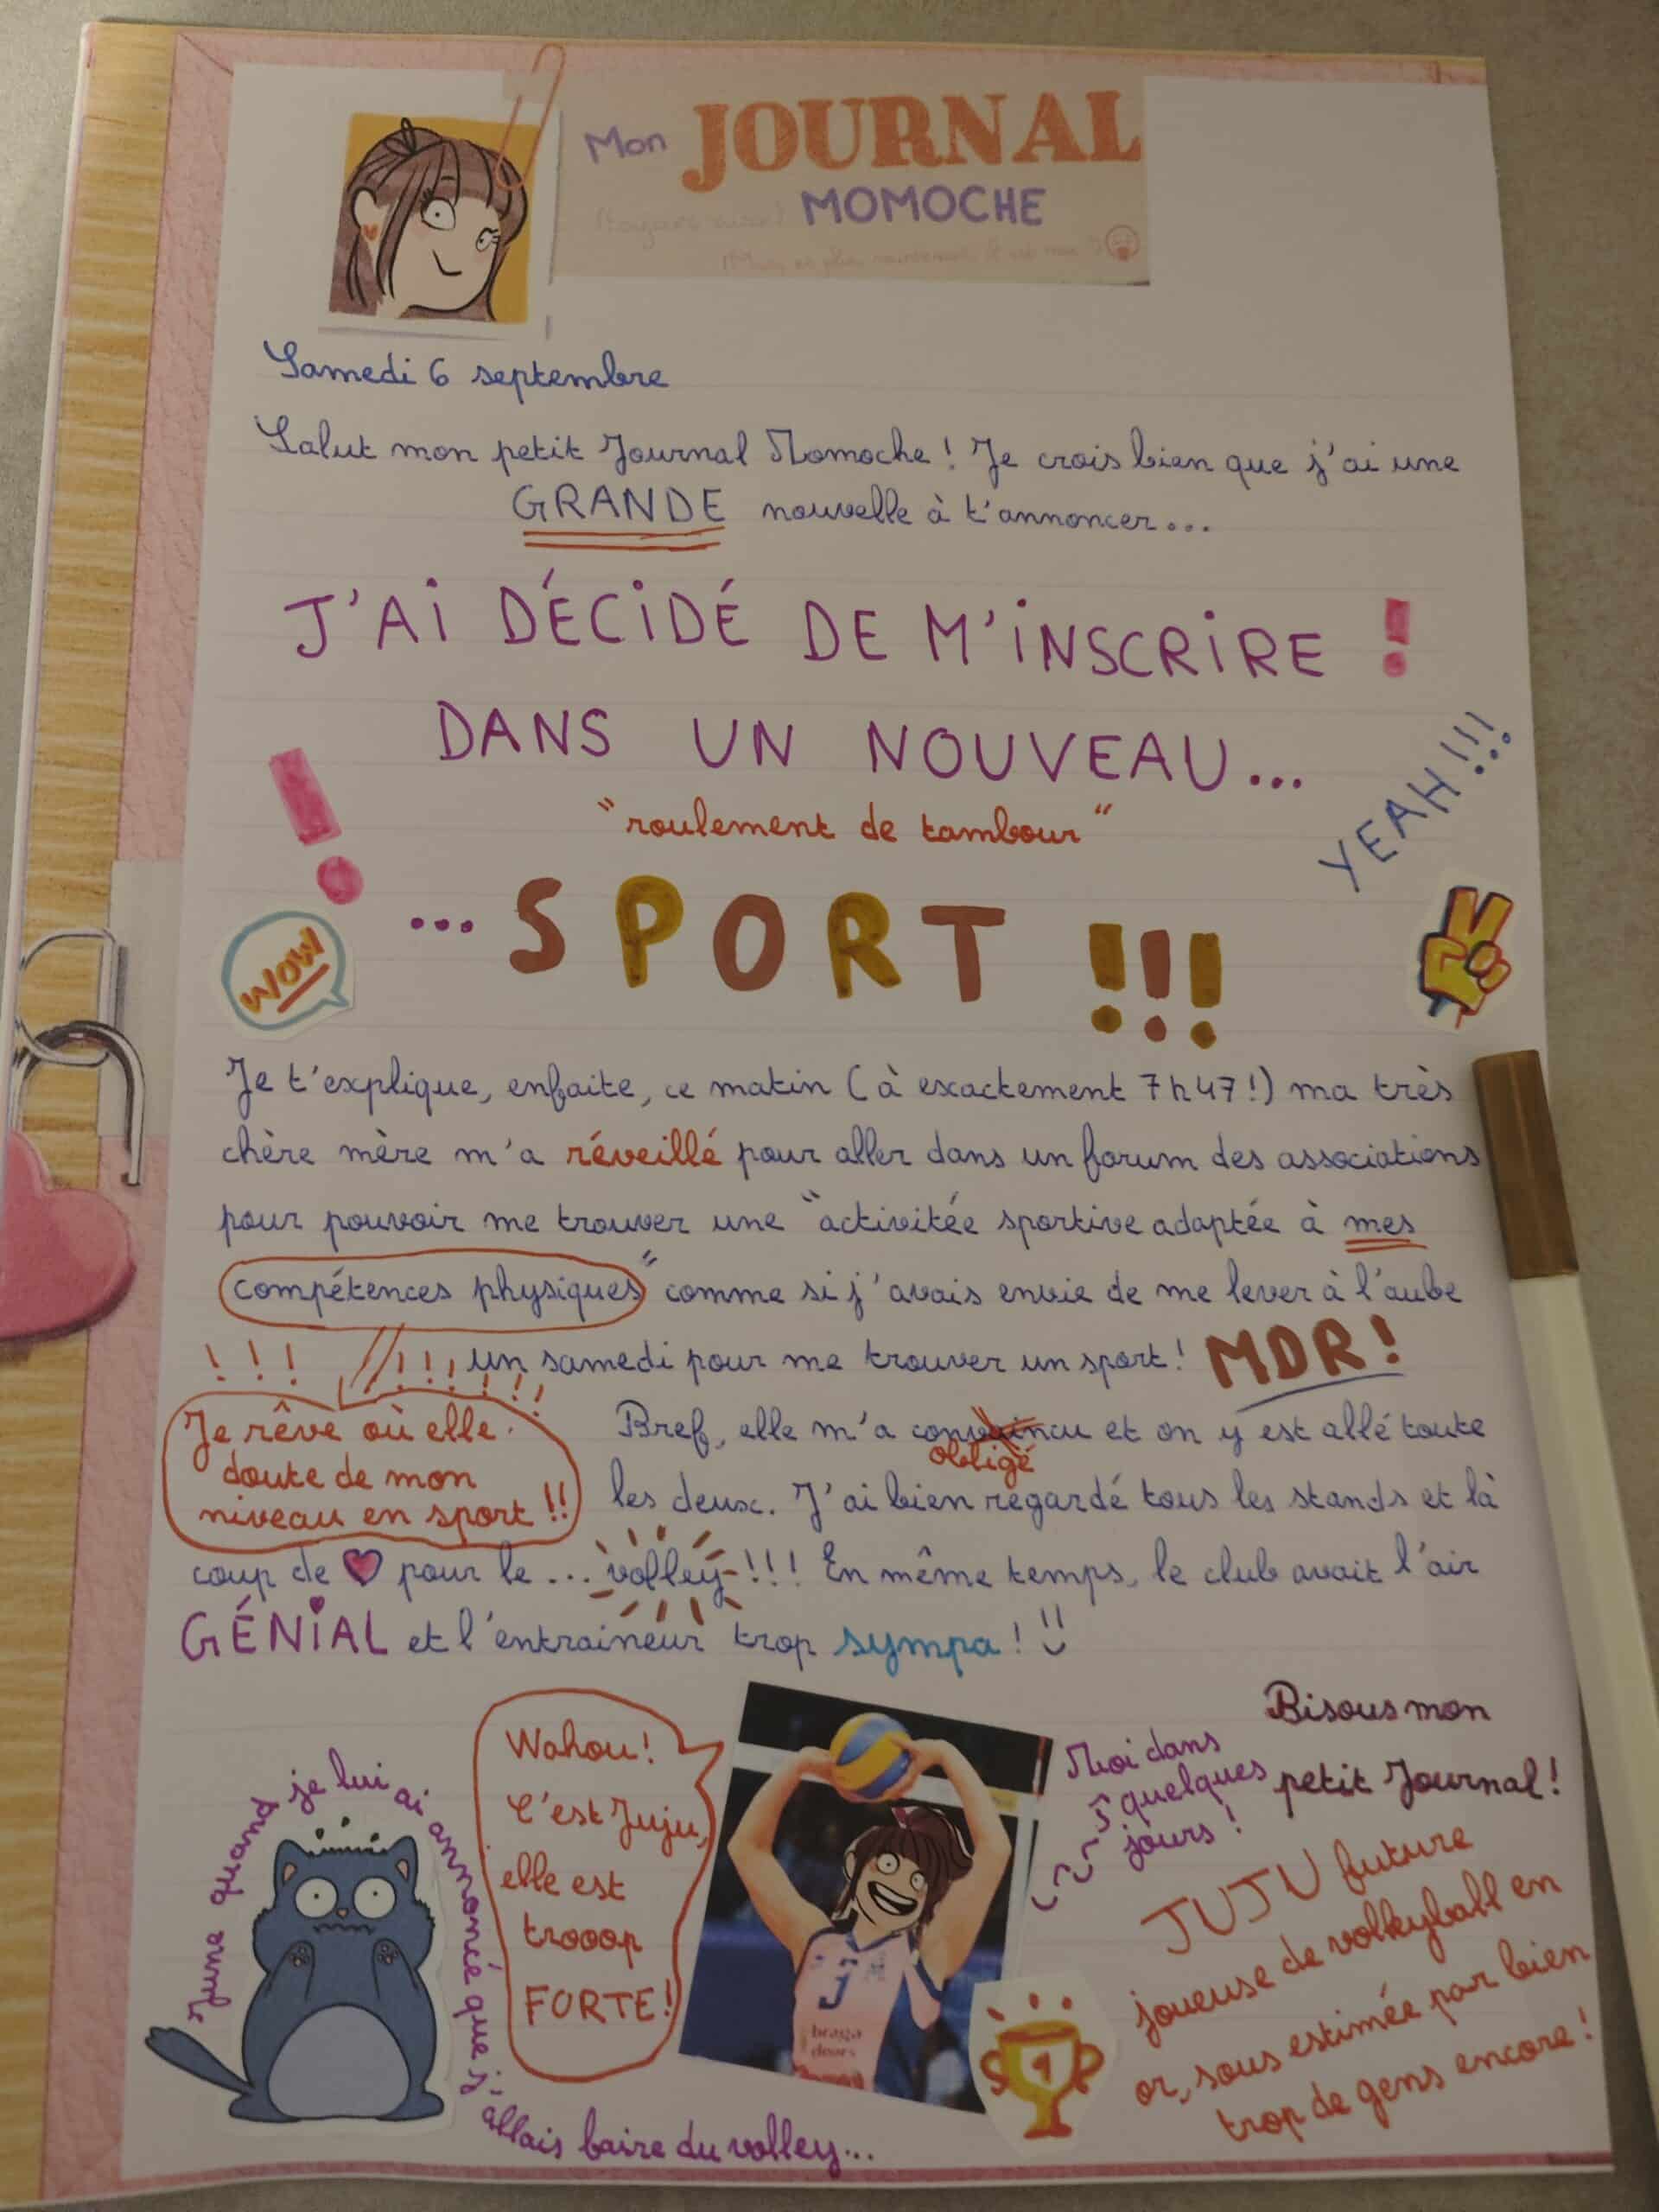 Mon JOURNAL
MOMOCHE
Samedi 6 septembre
Salut mon petit Journal Momoche ! Je crois bien que j'ai une
GRANDE nouvelle à t'annoncer...
J'AI DÉCIDÉ DE M'INSCRIRE !
DANS UN NOUVEAU...
YEAH !!!
"roulement de tambour"
!
WOW
... SPORT !!!
Je t'explique, enfaite, ce matin (à exactement 7h47!) ma très
chère mère m'a réveillé pour aller dans un forum des associations
pour pouvoir me trouver une "activitée sportive adaptée à mes
compétences physiques" comme si j'avais envie de me lever à l'aube
! ! ! ! ! ! ! ! ! ! un samedi pour me trouver un sport ! MDR !
Je rêve où elle
doute de mon
niveau en sport !!
Bref, elle m'a convaincu et on y est allé toute
obligé
les deux. J'ai bien regardé tous les stands et là
coup de ♥ pour le ... volley !!! En même temps, le club avait l'air
GÉNIAL et l'entraineur trop sympa ! :)
June quand je lui ai annoncé que j'allais faire du volley...
Wahou !
C'est Juju,
elle est
trooop
FORTE !
J
braga
1
Moi dans
quelques
jours !
Bisous mon
petit Journal !
JUJU future
joueuse de volleyball en
or, sous estimée par bien
trop de gens encore !